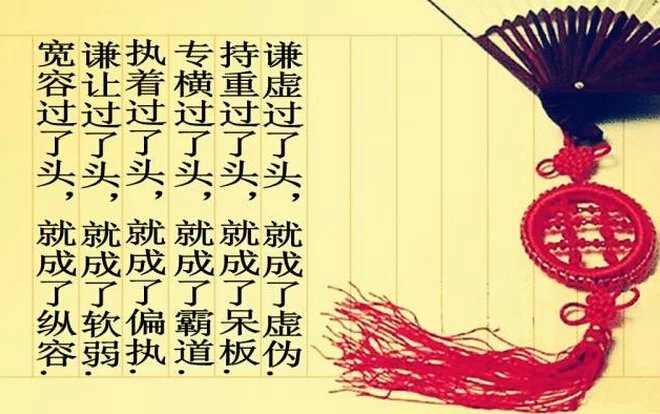 谦虚过了头，就成了虚伪.
持重过了头，就成了呆板.
专横过了头，就成了霸道.
执着过了头，就成了偏执.
谦让过了头，就成了软弱.
宽容过了头，就成了纵容.